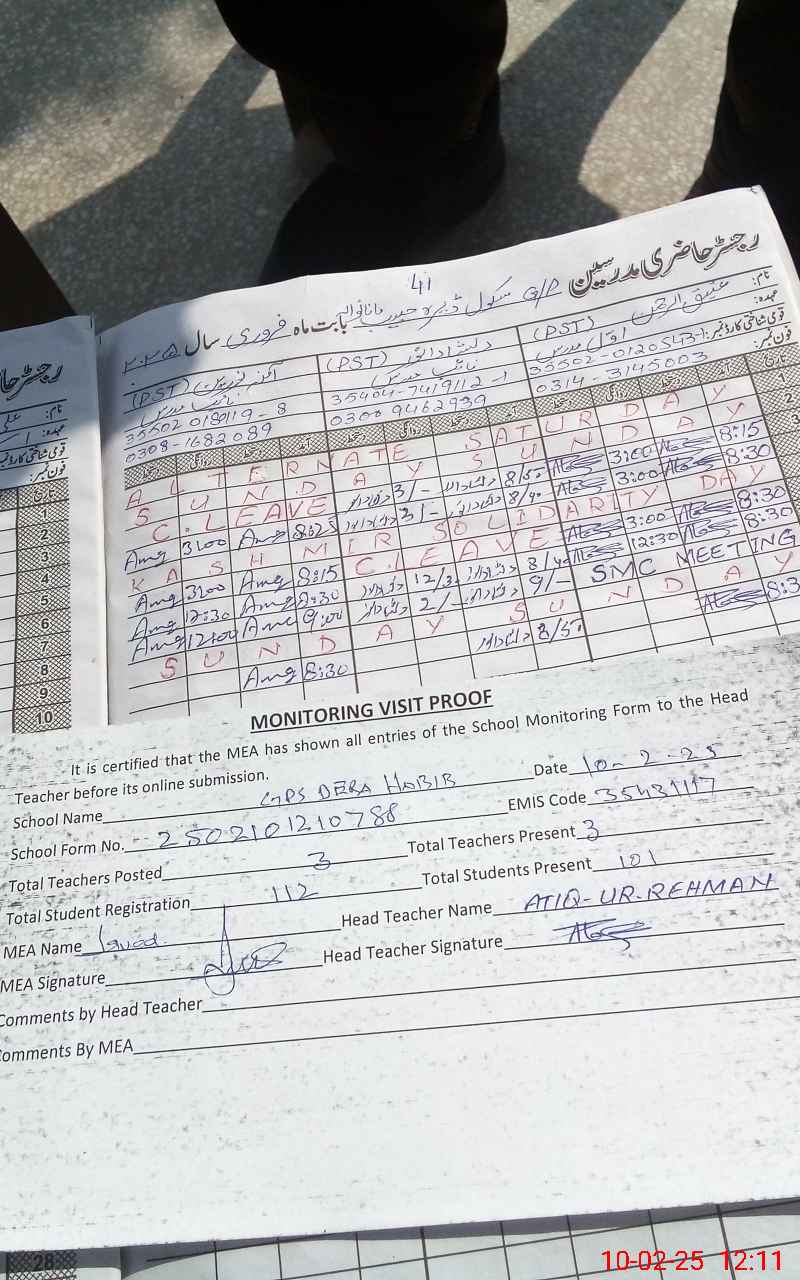 41
رجسٹر حاضری مدرسین G/P سکول ڈیرہ حبیب بابت ماہ فروری سال ۲۰۲۵
نام: عتیق الرحمن
عہدہ: اول مدرس (PST)
(PST)
نائب مدرس
(PST)
نائب مدرس
قومی شناختی کارڈ نمبر: 35502-0120543-1
35404-7419112-1
35502 0180119-8
فون نمبر: 0314-3145003
0300 9462939
0308-1682089
تاریخ آمد دستخط روانگی دستخط
1 ALTERNATE SATURDAY
2 SUNDAY SUNDAY
3 C.LEAVE 3/- 8/50 3:00 8:15
4 Amg 3:00 Amg 8:25 3/- 8/40 3:00 8:30
5 KASHMIR SOLIDARITY DAY
6 Amg 3:00 Amg 8:15 C.LEAVE 3:00 8:30
7 Amg 12:30 Amg 8:30 12/30 8/40 12:30 8:30
8 Amg 12:00 Amg 9:00 2/- 9/- SMC MEETING
9 SUNDAY SUNDAY
10 Amg 8:30 8/50 8:3
MONITORING VISIT PROOF
It is certified that the MEA has shown all entries of the School Monitoring Form to the Head
Teacher before its online submission.
School Name GPS DERA HABIB Date 10-2-25
School Form No. 2502101210788 EMIS Code 35431117
Total Teachers Posted 3 Total Teachers Present 3
Total Student Registration 112 Total Students Present 101
MEA Name Javed Head Teacher Name ATIQ-UR-REHMAN
MEA Signature Head Teacher Signature
Comments by Head Teacher
Comments By MEA
28
10-02-25 12:11